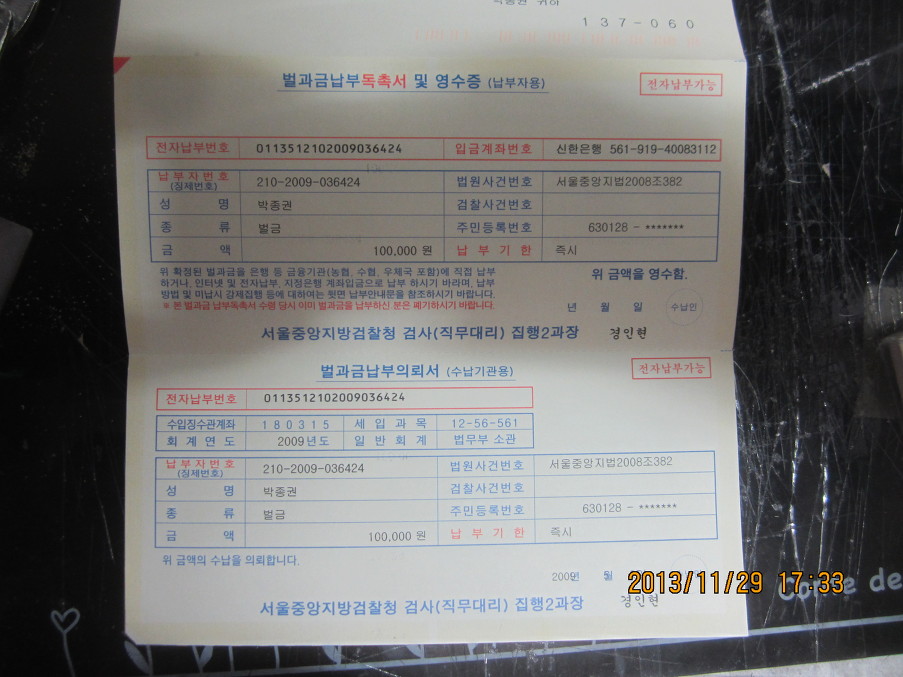 박종권 귀하
137-060
벌과금납부독촉서 및 영수증 (납부자용)
전자납부가능
전자납부번호 0113512102009036424 입금계좌번호 신한은행 561-919-40083112
납부자번호 (징제번호) 210-2009-036424 법원사건번호 서울중앙지법2008조382
성 명 박종권 검찰사건번호
종 류 벌금 주민등록번호 630128 - *******
금 액 100,000 원 납부기한 즉시
위 확정된 벌과금을 은행 등 금융기관(농협, 수협, 우체국 포함)에 직접 납부
하거나, 인터넷 및 전자납부, 지정은행 계좌입금으로 납부 하시기 바라며, 납부
방법 및 미납시 강제집행 등에 대하여는 뒷면 납부안내문을 참조하시기 바랍니다.
※ 본 벌과금 납부독촉서 수령 당시 이미 벌과금을 납부하신 분은 폐기하시기 바랍니다.
위 금액을 영수함.
년 월 일 수납인
서울중앙지방검찰청 검사(직무대리) 집행2과장 경인현
벌과금납부의뢰서 (수납기관용)
전자납부가능
전자납부번호 0113512102009036424
수입징수관계좌 180315 세입과목 12-56-561
회계연도 2009년도 일반회계 법무부 소관
납부자번호 (징제번호) 210-2009-036424 법원사건번호 서울중앙지법2008조382
성 명 박종권 검찰사건번호
종 류 벌금 주민등록번호 630128 - *******
금 액 100,000 원 납부기한 즉시
위 금액의 수납을 의뢰합니다.
월
서울중앙지방검찰청 검사(직무대리) 집행2과장 경인현
2013/11/29 17:33
Come de